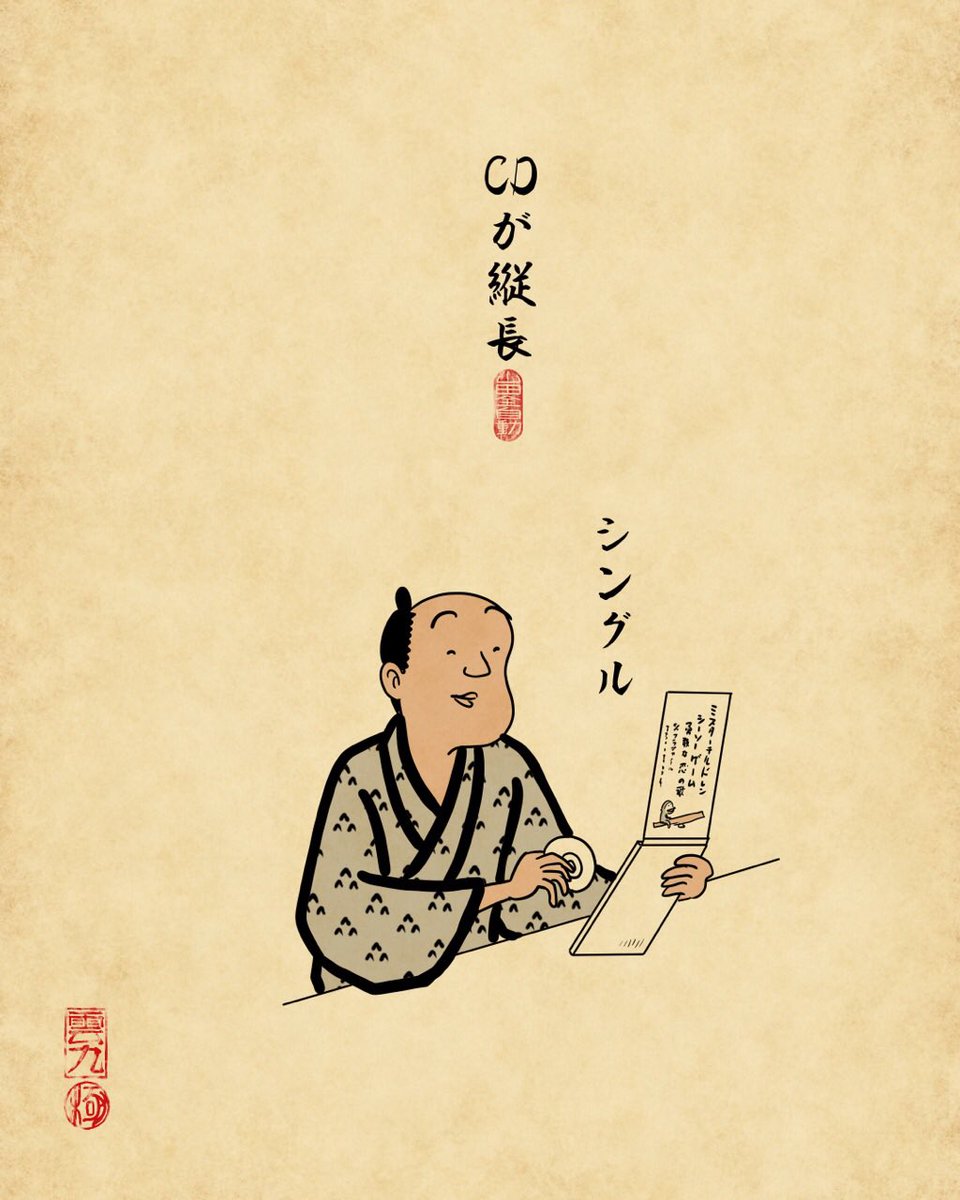 CDが縦長
シングル
ミスターチルドレン
シーソーゲーム
勇敢な恋の歌